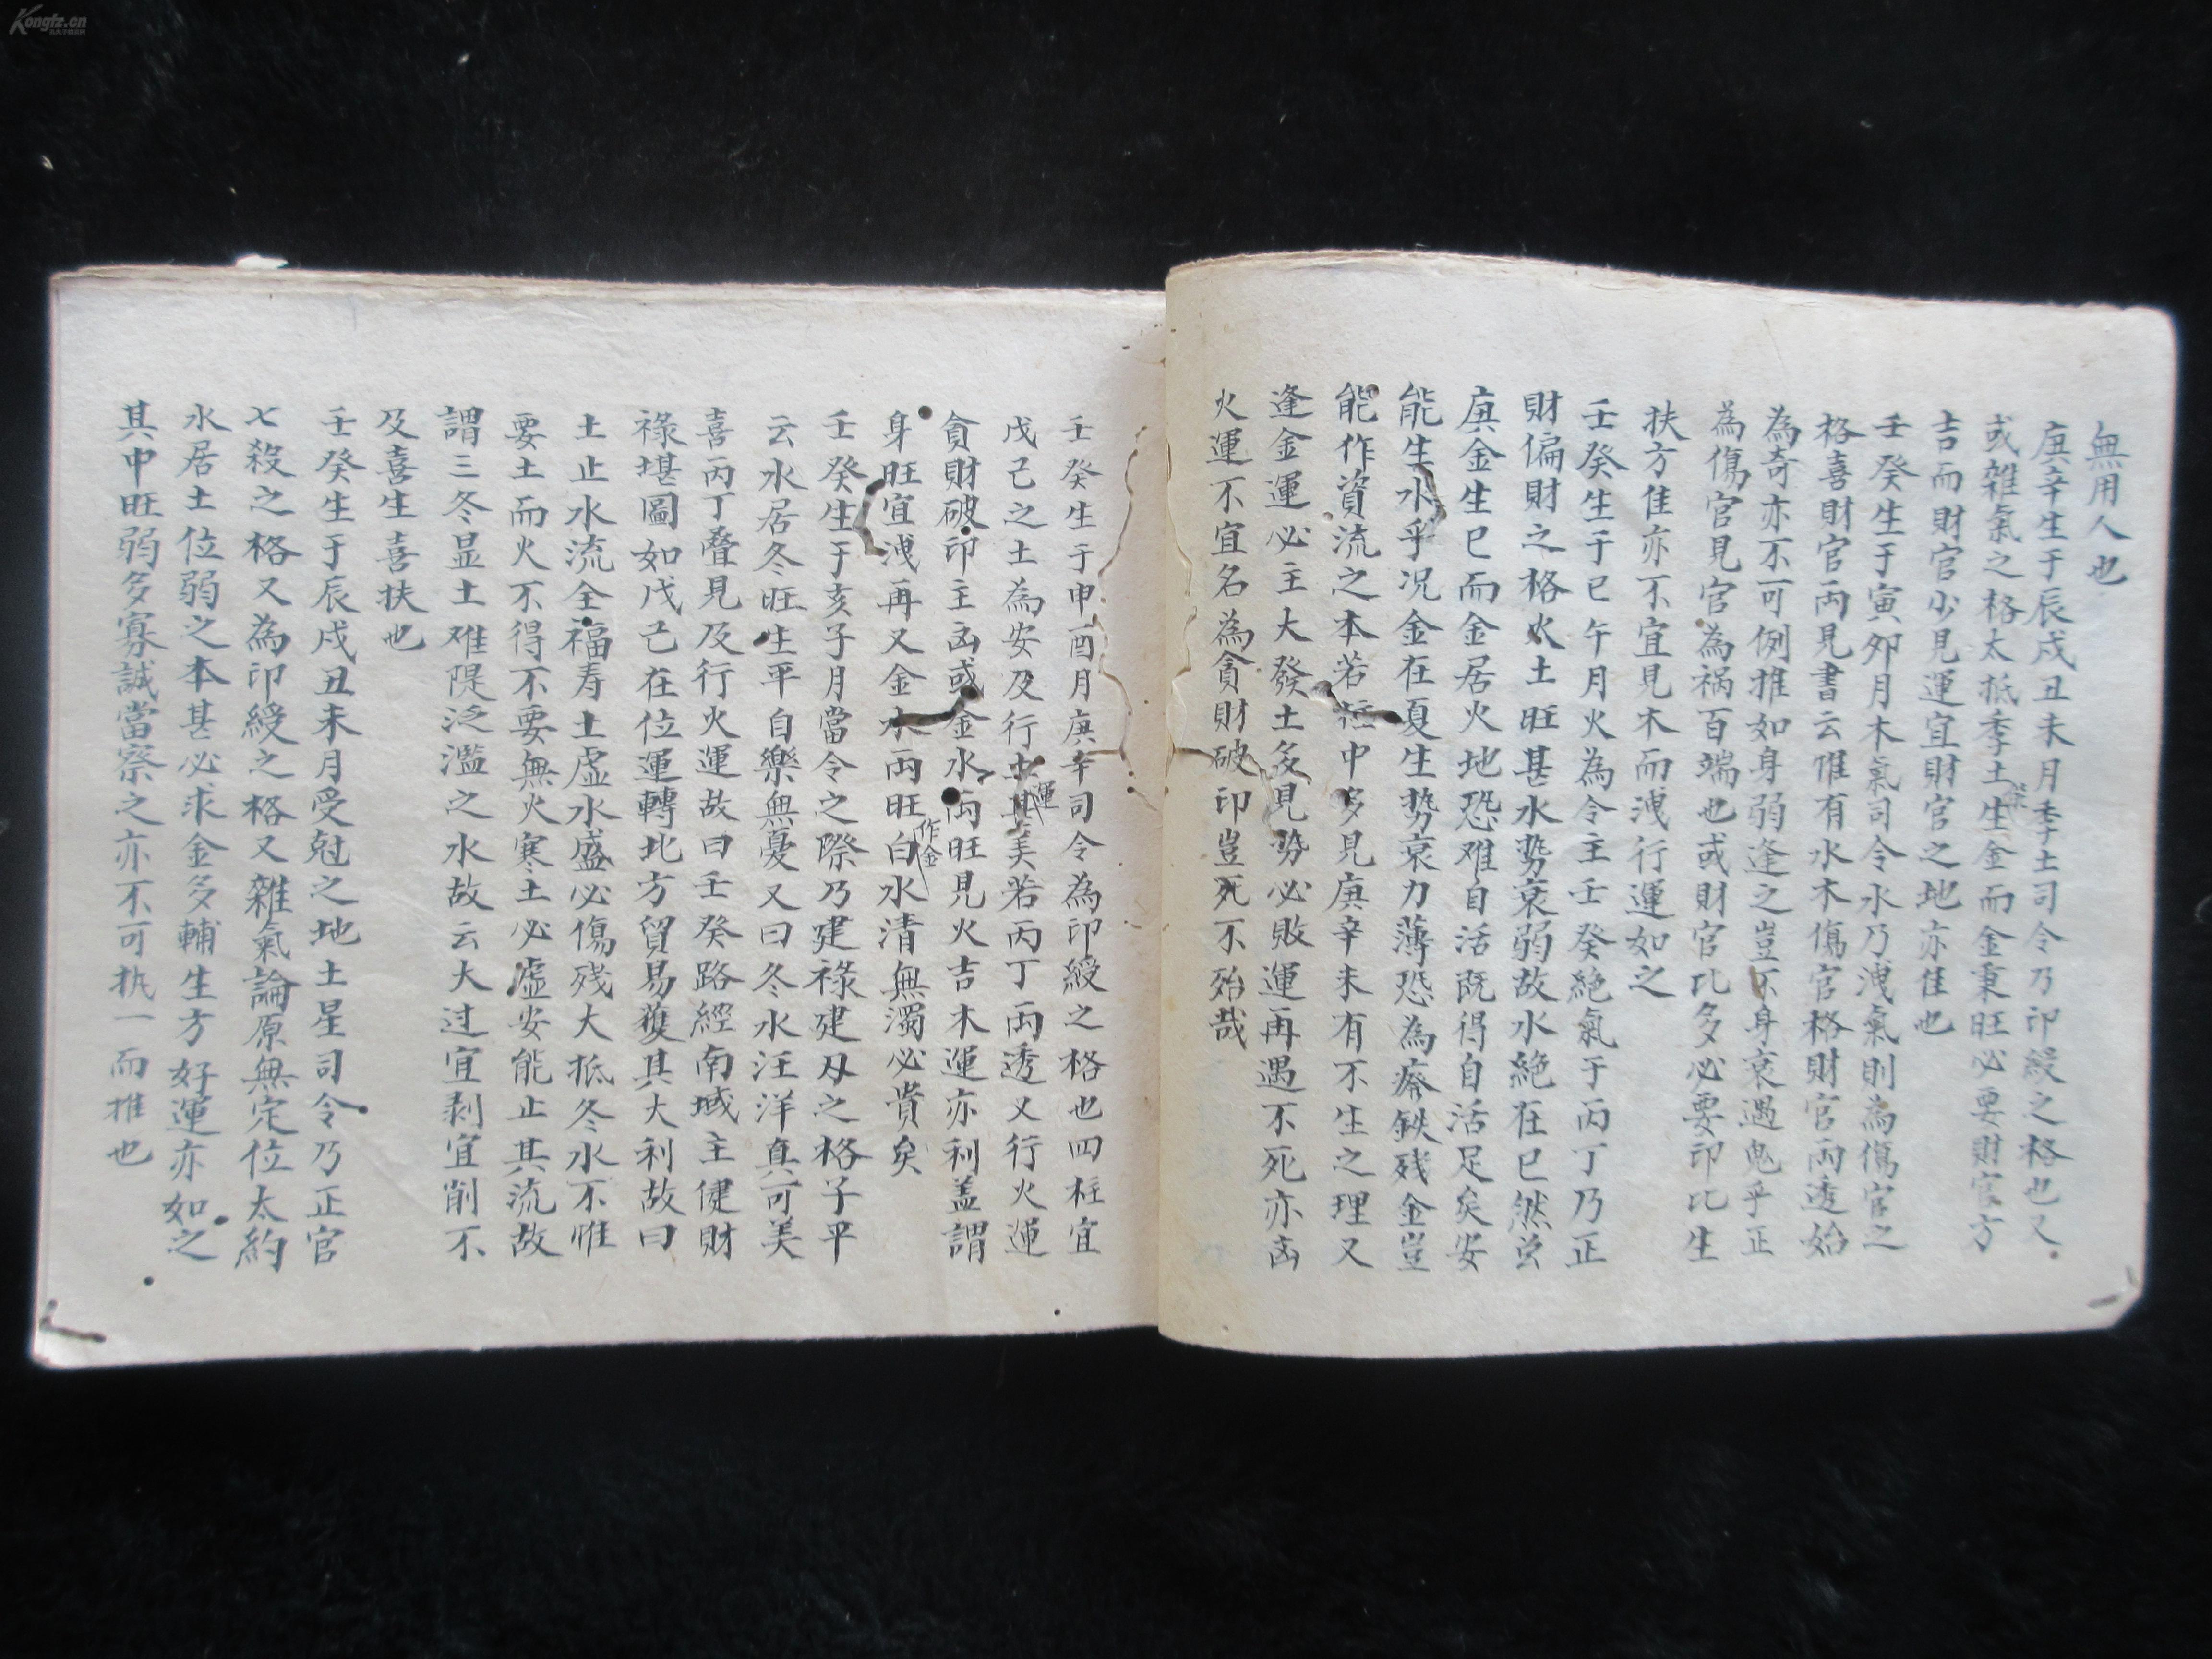 無用人也
庚辛生于辰戌丑未月季土司令乃印綬之格也又
或雜氣之格太抵季土生金而金秉旺必要財官方
吉而財官少見運宜財官之地亦佳也
壬癸生于寅夘月木氣司令水乃洩氣則為傷官之
格喜財官両見書云惟有水木傷官格財官両透始
為奇亦不可例推如身弱逢之豈不身衰遇鬼乎正
為傷官見官為禍百端也或財官比多必要印比生
扶方佳亦不宜見木而洩行運如之
壬癸生于巳午月火為令主壬癸絕氣于丙丁乃正
財偏財之格火土旺甚水势衰弱故水絕在巳然岂
庚金生巳而金居火地恐难自活既得自活足矣安
能生水乎况金在夏生势衰力薄恐為瘠鉄残金豈
能作資流之本若 中多見庚辛未有不生之理又
逢金運必主大發土多見势必敗運再遇不死亦凶
火運不宜名為貪財破印豈死不殆哉
壬癸生于申酉月庚辛司令為印綬之格也四柱宜
戊己之土為安及行土運其美若丙丁両透又行火運
貪財破印主凶或金水両旺見火吉木運亦利盖謂
身旺宜洩再又金水両旺白作金水清無濁必貴矣
壬癸生于亥子月當令之際乃建祿建刃之格子平
云水居冬旺生平自樂無憂又曰冬水汪洋真可美
喜丙丁叠見及行火運故曰壬癸路經南域主健財
祿堪圖如戊己在位運轉北方貿易獲其大利故曰
土止水流全福寿土虛水盛必傷残大抵冬水不惟
要土而火不得不要無火寒土必虛安能止其流故
謂三冬显土难隄泛濫之水故云大过宜剥宜削不
及喜生喜扶也
壬癸生于辰戌丑未月受尅之地土星司令乃正官
七殺之格又為印綬之格又雜氣論原無定位太約
水居土位弱之本甚必求金多輔生方好運亦如之
其中旺弱多寡誠當察之亦不可执一而推也
Kongfz.cn